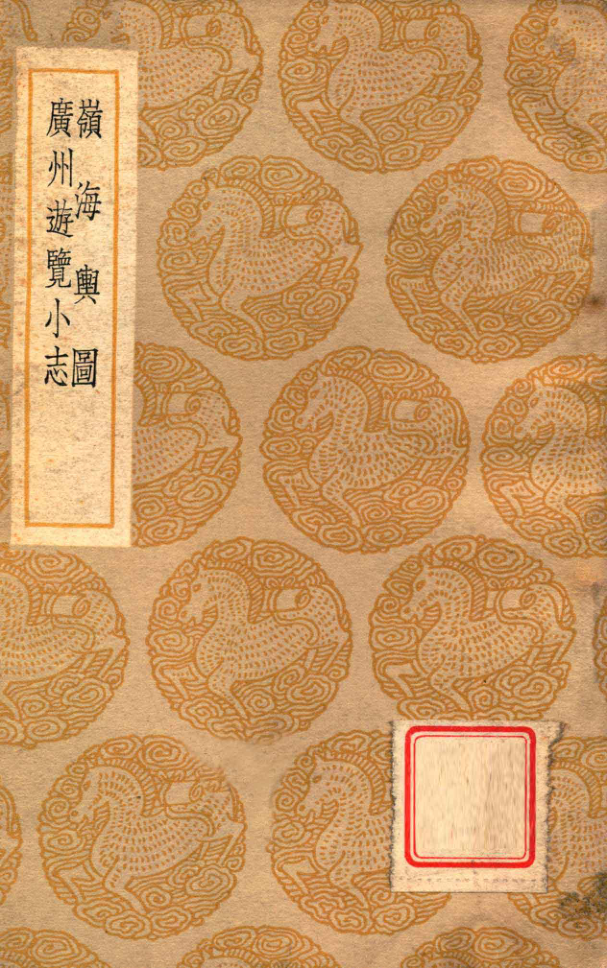 嶺海輿圖
廣州遊覽小志